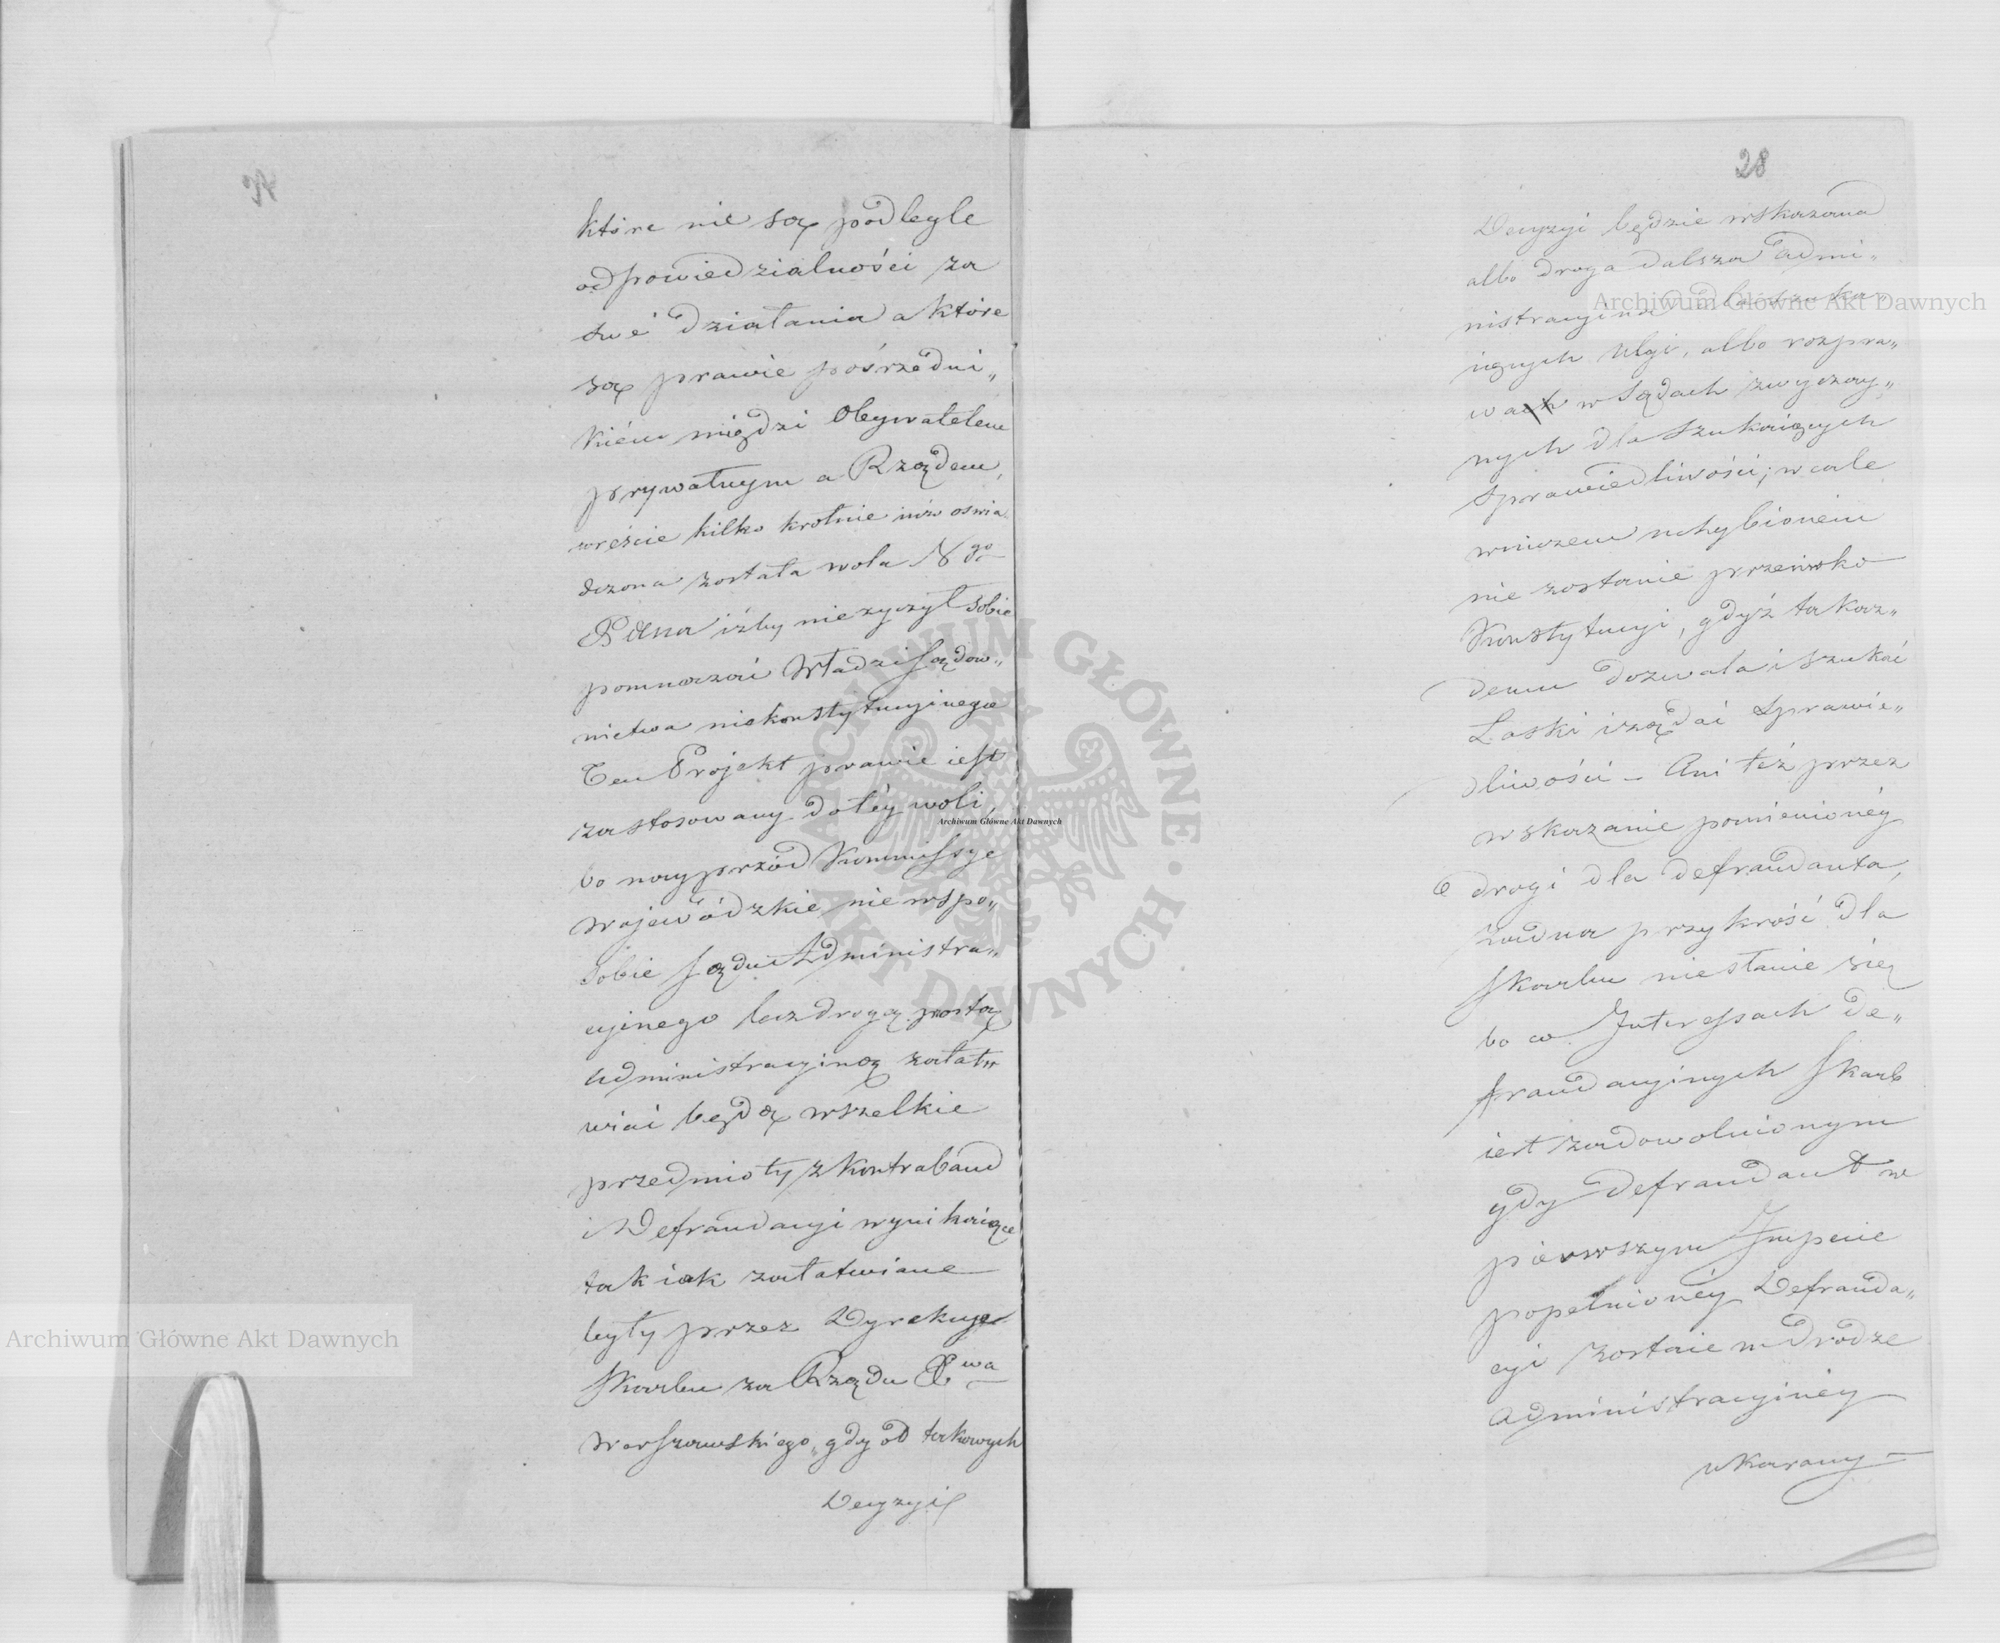 które nie są podległe
odpowiedzialności za
swé działania a które
są prawie pośrzedni„
kiém międzi Obywatelem
prywatnym a Rządem,
wreście kilko krotnie iuż oswia„
dczona została wola Ngo
Pana iżby nie zyczył sobie
pomnarzać Władzi Sądow„
nictwa niekonstytucyjnego
Ten Projekt prawie iest
zastosowany do téy woli,
bo nayprzód Kommissye
Wojewódzkie, nie w spo„
sobie Sądu Administra„
cyinego lecz drogą prostą
administracyiną załat„
wiać będą wszelkie
przedmioty z Kontraband
i Defraudacyi wynikaiące
tak iak załatwiane
były przez Dyrekcye
Skarbu za Rządu Xwa
Warszawskiego, gdy od takowych
Decyzyi
28
Decyzyi będzie wskazana
albo droga dalsza admi„
nistracyina dla szuka„
iących ulgi, albo rozpra„
wa w Sądach zwyczay„
nych dla szukaiących
Sprawiedliwości; wcale
wniczem uchybionem
nie zostanie przeciwko
Konstytucyi, gdyż ta każ„
demu dozwala i szukać
Łaski i żądać Sprawie„
dliwości – Ani też przez
wskazanie pomienionéy
drogi dla defraudanta,
żadna przykrość dla
Skarbu niestanie się
bo w Interessach de„
fraudacyinych Skarb
iest zadowolnionym
gdy Defraudant w
pierwszym Impecie
popełnionéy Defrauda„
cyi zostaie w drodze
administracyinéy
ukarany –
Archiwum Główne Akt Dawnych
Archiwum Główne Akt Dawnych
Archiwum Główne Akt Dawnych
ARCHIWUM GŁÓWNE · AKT DAWNYCH ·